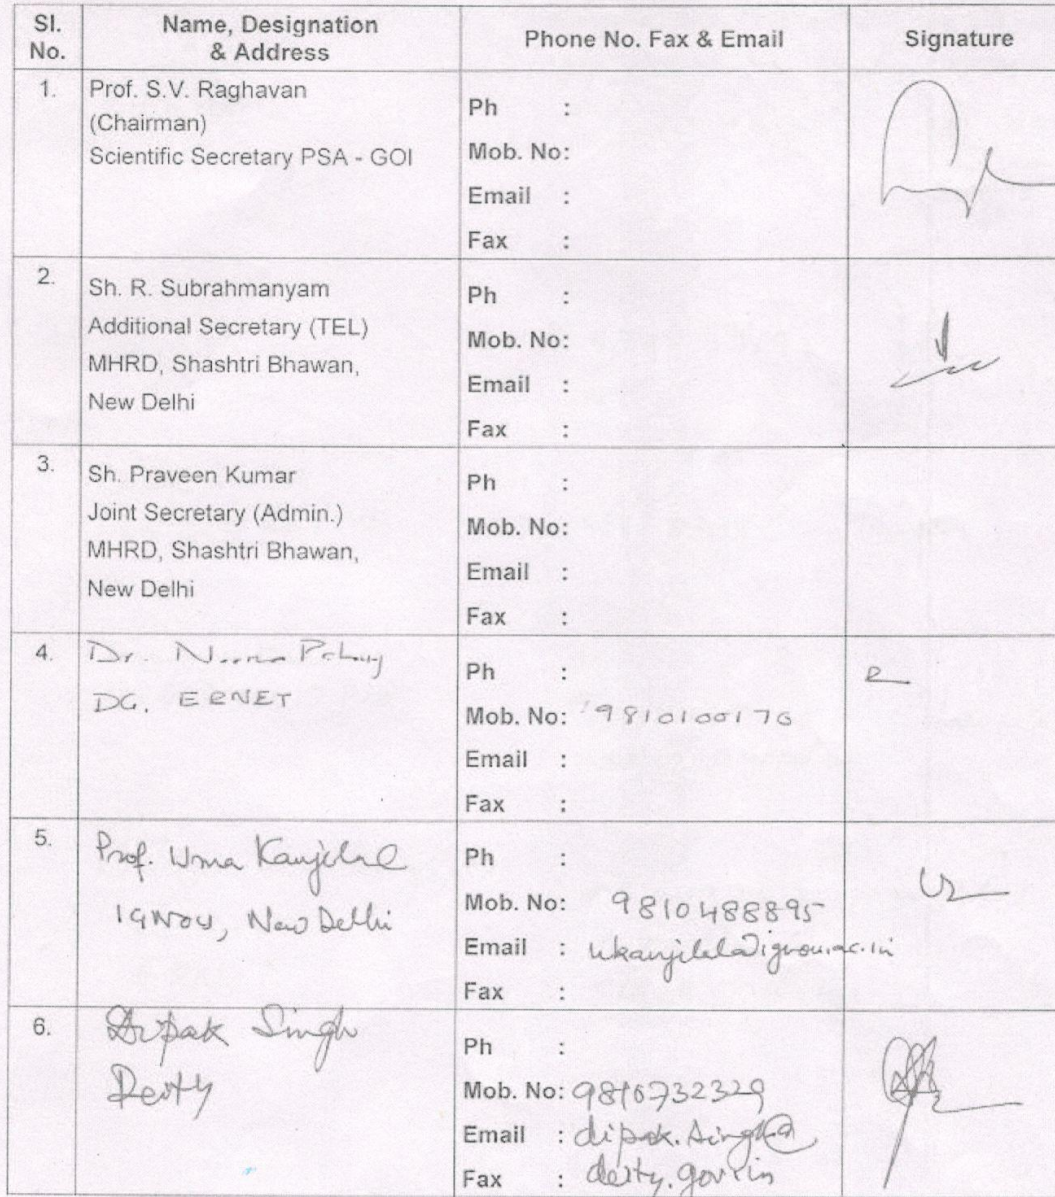 Sl. No. Name, Designation & Address Phone No. Fax & Email Signature
1. Prof. S.V. Raghavan
(Chairman)
Scientific Secretary PSA - GOI
Ph :
Mob. No:
Email :
Fax :
2. Sh. R. Subrahmanyam
Additional Secretary (TEL)
MHRD, Shashtri Bhawan,
New Delhi
Ph :
Mob. No:
Email :
Fax :
3. Sh. Praveen Kumar
Joint Secretary (Admin.)
MHRD, Shashtri Bhawan,
New Delhi
Ph :
Mob. No:
Email :
Fax :
4. Dr.
DG, ERNET
Ph :
Mob. No: 9810100170
Email :
Fax :
5. Prof. Uma Kanjilal
IGNOU, New Delhi
Ph :
Mob. No: 9810488895
Email : ukanjilal@ignou.ac.in
Fax :
6. Dipak Singh
Deity
Ph :
Mob. No: 9810732329
Email : dipak.singh@
Fax : deity.gov.in